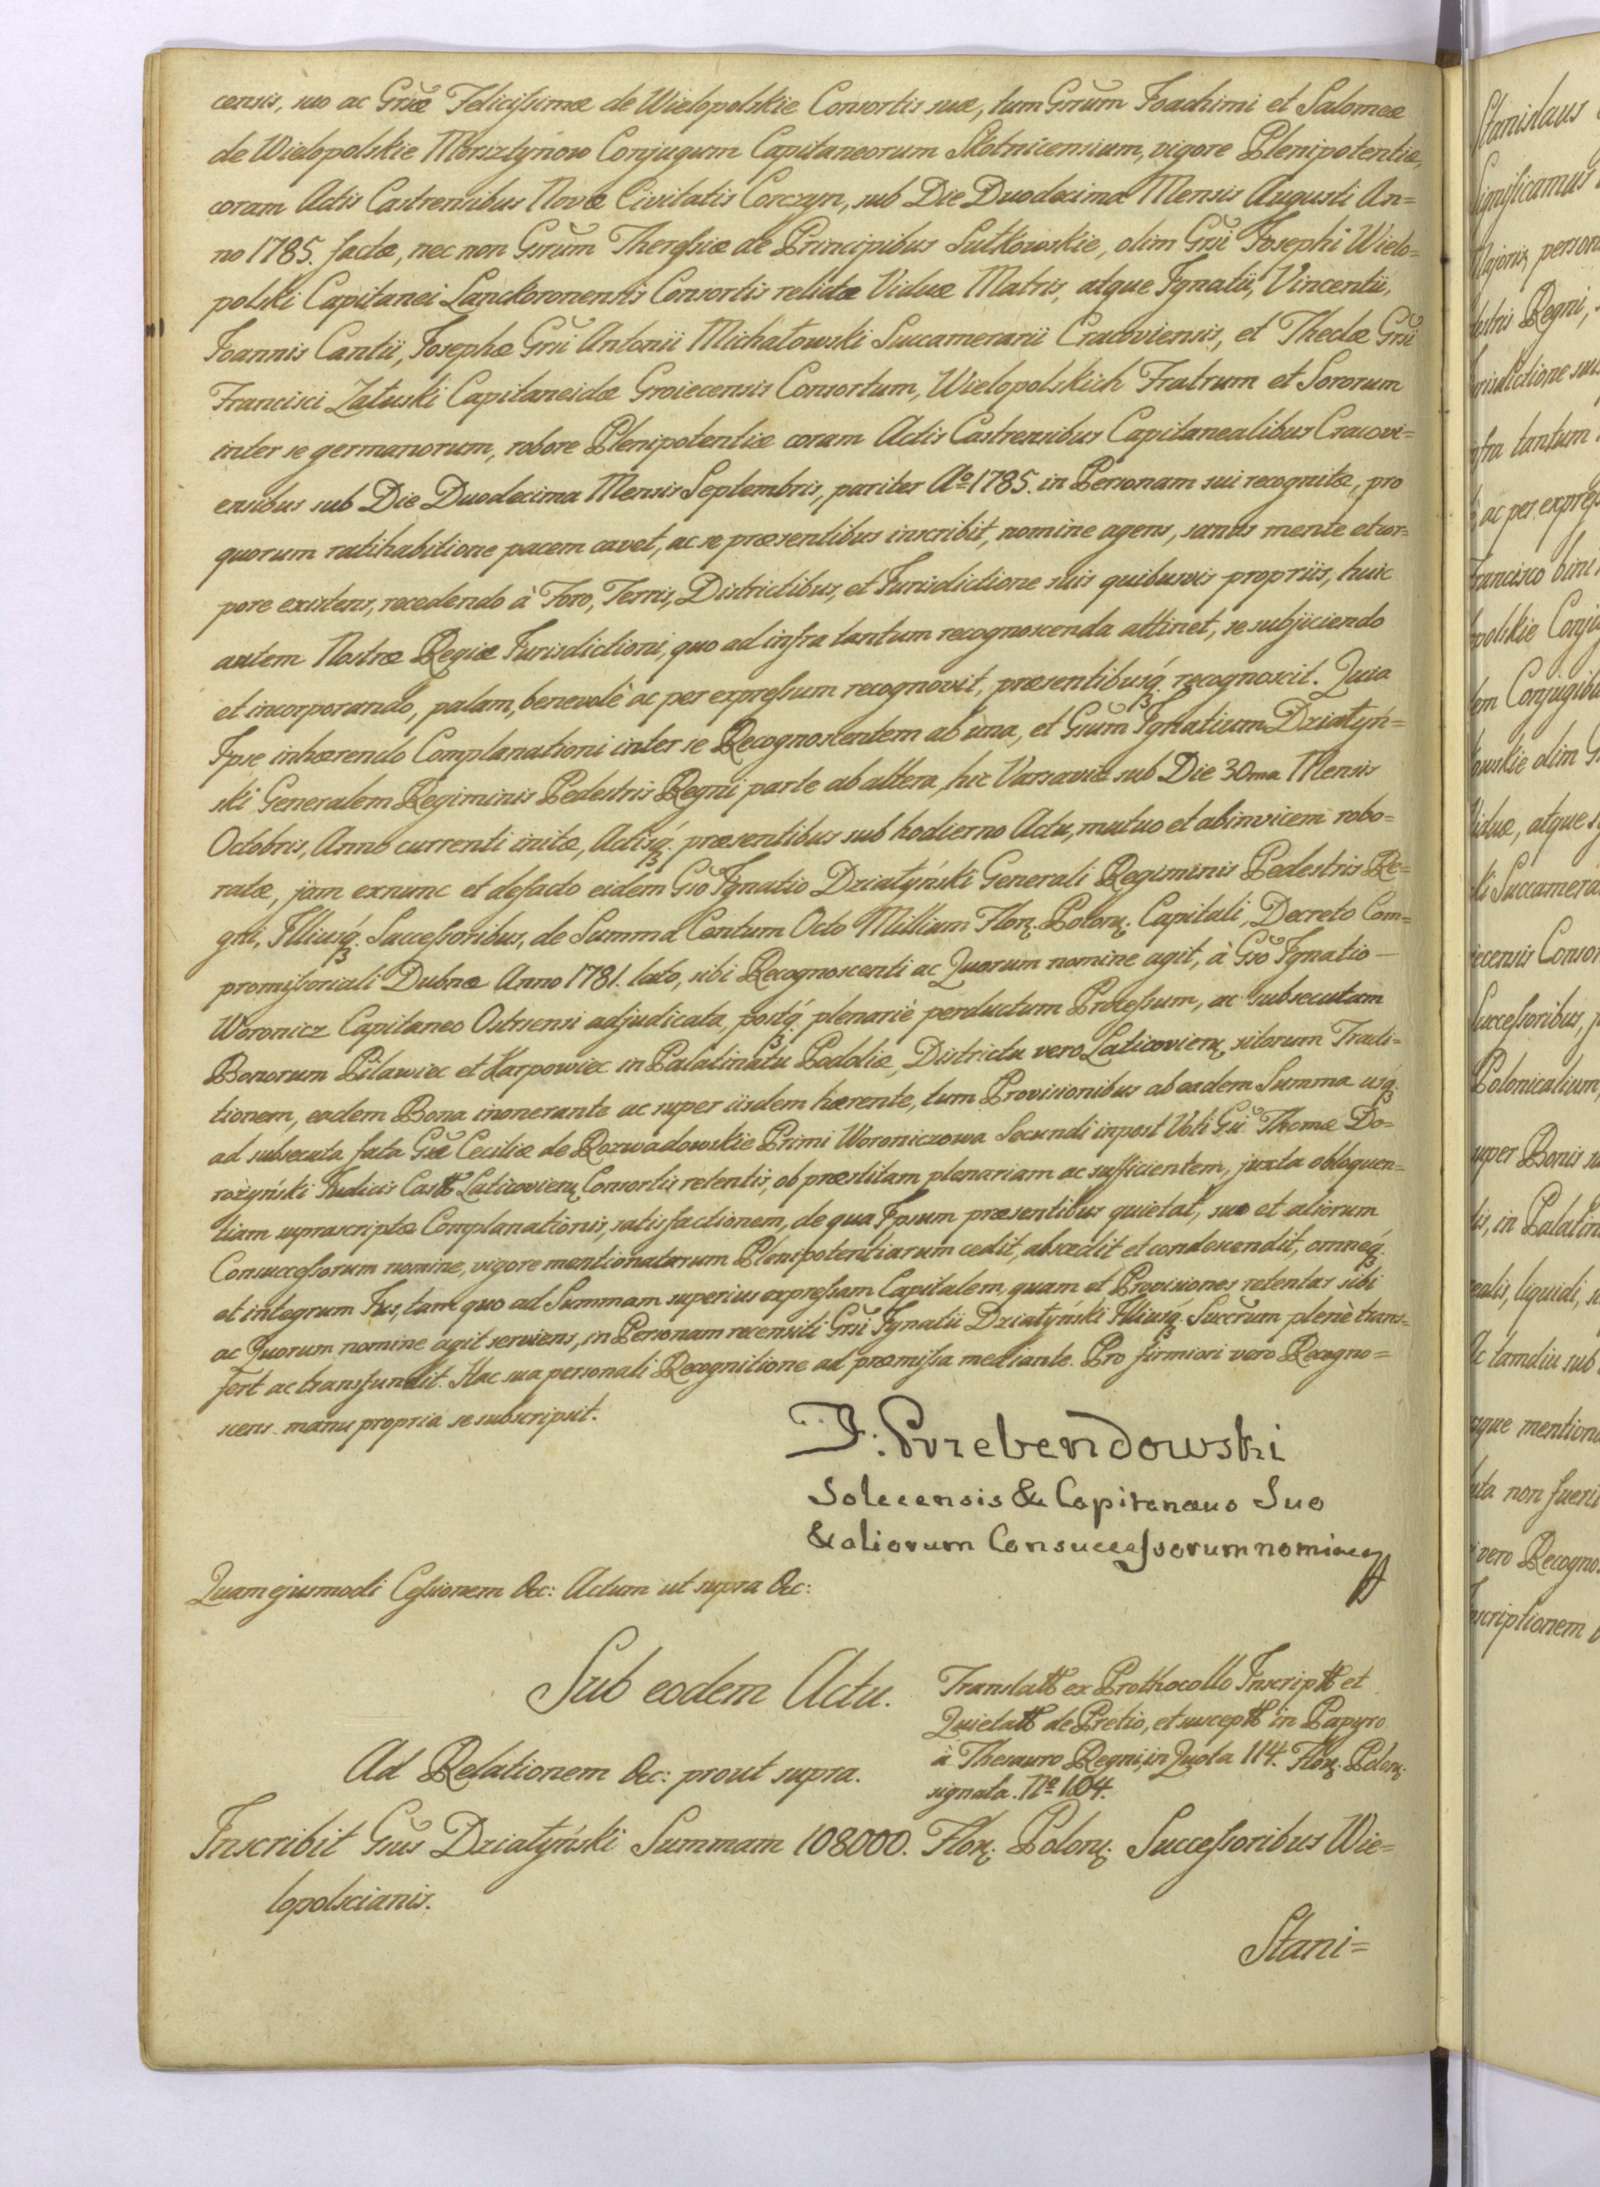 censis, suo ac Gnæ Felicissimæ de Wielopolskie Consortis suæ, tum Gnrum Joachimi et Salomeæ
de Wielopolskie Morsztynow Conjugum Capitaneorum Skotnicensium, vigore Plenipotentiæ,
coram Actis Castrensibus Novæ Civitatis Corczyn, sub Die Duodecima Mensis Augusti An=
no 1785. factæ, nec non Gnrum Theresiæ de Principibus Sułkowskie, olim Gni Josephi Wielo=
polski Capitanei Lanckoronensis Consortis relictæ Viduæ Matris, atque Ignatii, Vincentii,
Joannis Cantii, Josephæ Gni Antonii Michałowski Succamerarii Cracoviensis, et Theclæ Gni
Francisci Załuski Capitaneidæ Groiecensis Consortum, Wielopolskich Fratrum et Sororum
inter se germanorum, robore Plenipotentiæ coram Actis Castrensibus Capitanealibus Cracovi=
ensibus sub Die Duodecima Mensis Septembris, pariter Aº 1785. in Personam sui recognitæ, pro
quorum ratihabitione pacem cavet, ac se præsentibus inscribit, nomine agens, sanus mente et cor=
pore existens, recedendo à Foro, Terris, Districtibus, et Jurisdictione suis quibusvis propriis, huic
autem Nostræ Regiæ Jurisdictioni, quo ad infra tantum recognoscenda attinet, se subjiciendo
et incorporando, palam, benevolè ac per expressum recognovit, præsentibusq. recognoscit. Quia
Ipse inhærendo Complanationi inter se Recognoscentem ab una, et Gnum Ignatium Działyń=
ski Generalem Regiminis Pedestris Regni parte ab altera, hic Varsaviæ sub Die 30ma Mensis
Octobris, Anno currenti initæ, Actisq. præsentibus sub hodierno Actu, mutuo et abinvicem robo=
ratæ, jam exnunc et defacto eidem Gno Ignatio Działyński Generali Regiminis Pedestris Re=
gni, Illiusq. Successoribus, de Summa Centum Octo Millium Flor. Polon. Capitali, Decreto Com=
promissoriali Dubnæ Anno 1781. lato, sibi Recognoscenti ac Quorum nomine agit, à Gno Ignatio —
Woronicz Capitaneo Ostrsensi adjudicata, postq. plenariè perductum Processum, ac subsecutam
Bonorum Pilawiec et Karpowiec in Palatinatu Podoliæ, Districtu vero Laticovien. sitorum Tradi=
tionem, eadem Bona inonerante ac super iisdem hærente, tum Provisionibus ab eadem Summa usq.
ad subsecuta fata Gnæ Ceciliæ de Rozwadowskie Primi Woroniczowa Secundi inpost Voti Gni Thomæ Do=
rożyński Judicis Castr. Laticovien. Consortis retentis, ob præstitam plenariam ac sufficientem, juxta obloquen=
tiam suprascriptæ Complanationis, satisfactionem, de qua Ipsum præsentibus quietat, suo et aliorum
Consuccessorum nomine, vigore mentionatarum Plenipotentiarum cedit, abscedit et condescendit, omneq.
et integrum Jus, tam quo ad Summam superius expressam Capitalem, quam et Provisiones retentas sibi
ac Quorum nomine agit serviens, in Personam recensiti Gni Ignatii Działyński Illiusq. Succrum plenè trans=
fert ac transfundit. Hac sua personali Recognitione ad præmissa mediante. Pro firmiori vero Recogno=
scens manu propria se subscripsit.
J: Przebendowski
Solecensis & Capitanæus Suo
& aliorum Consuccessorum nomine
Quam ejusmodi Cessionem &c: Actum ut supra &c:
Sub eodem Actu.
Translatt. ex Prothocollo Inscriptt. et
Quietatt. de Pretio, et susceptt. in Papyro
à Thesauro Regni, in Quota 114. Flor. Polon.
signata. Nº 104.
Ad Relationem &c: prout supra.
Inscribit Gnus Działyński Summam 108000. Flor. Polon. Successoribus Wie=
lopolscianis.
Stani=